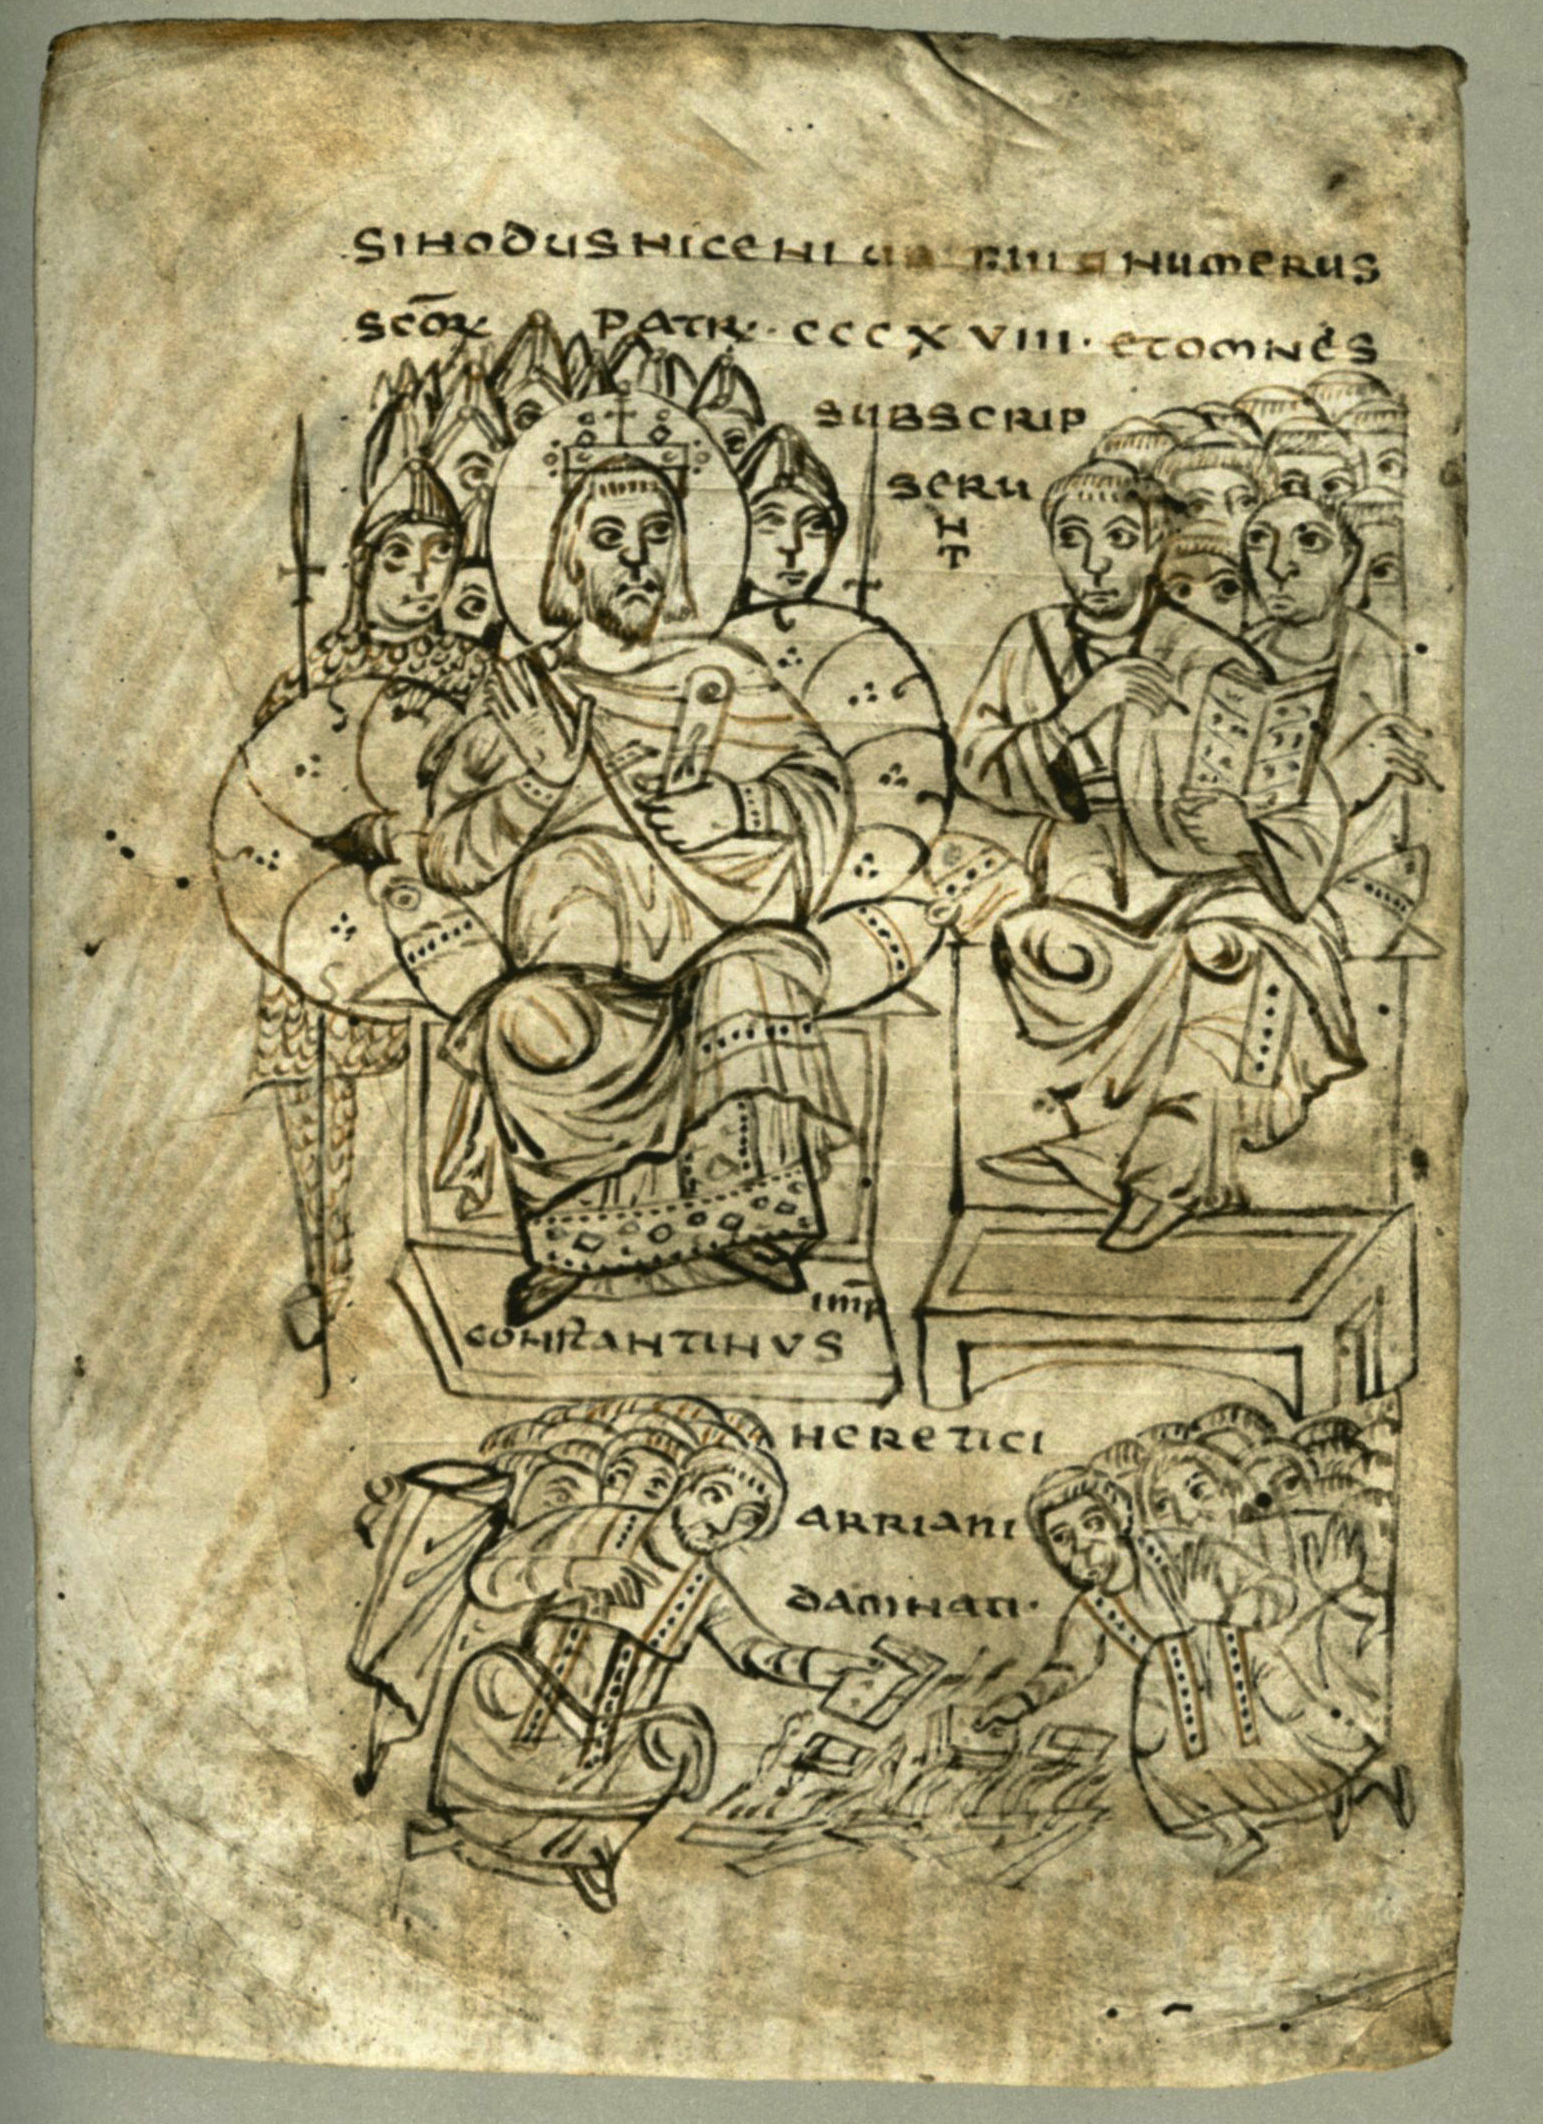 SINODUS NICENI NUMERUS
SCŌR PATR· CCCXVIII· ET OMNES
SUBSCRIP
SERU
N
T
IMP̄
CONSTANTINVS
HERETICI
ARRIANI
DAMNATI·